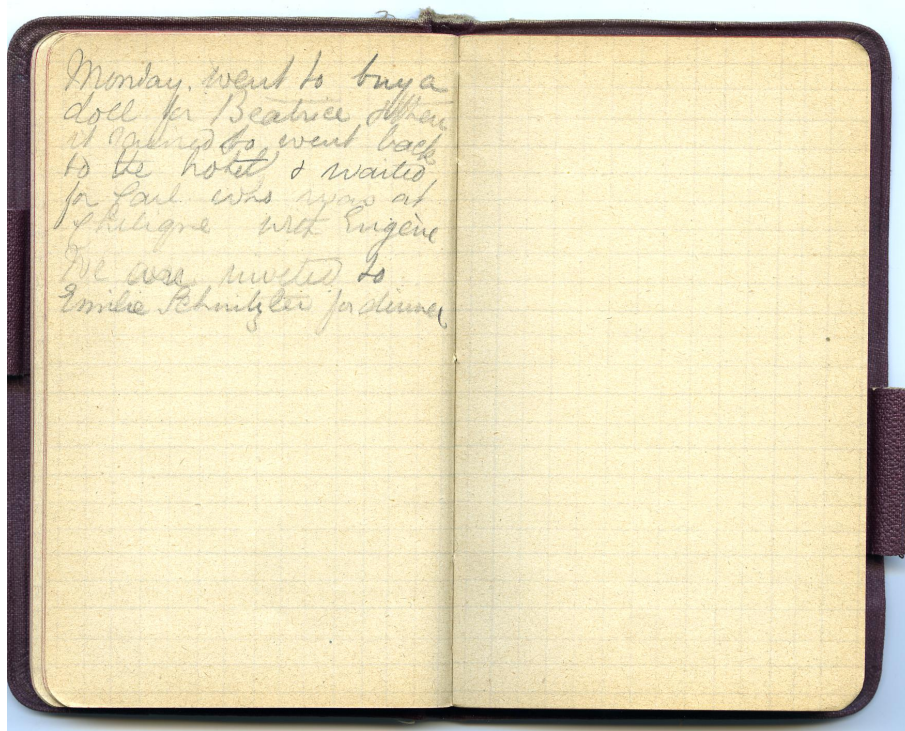 Monday. went to buy a
doll for Beatrice & then
it rained so went back
to the hotel & waited
for Carl who was at
with Eugène
We were invited to
Emilie Schnitzler for dinner